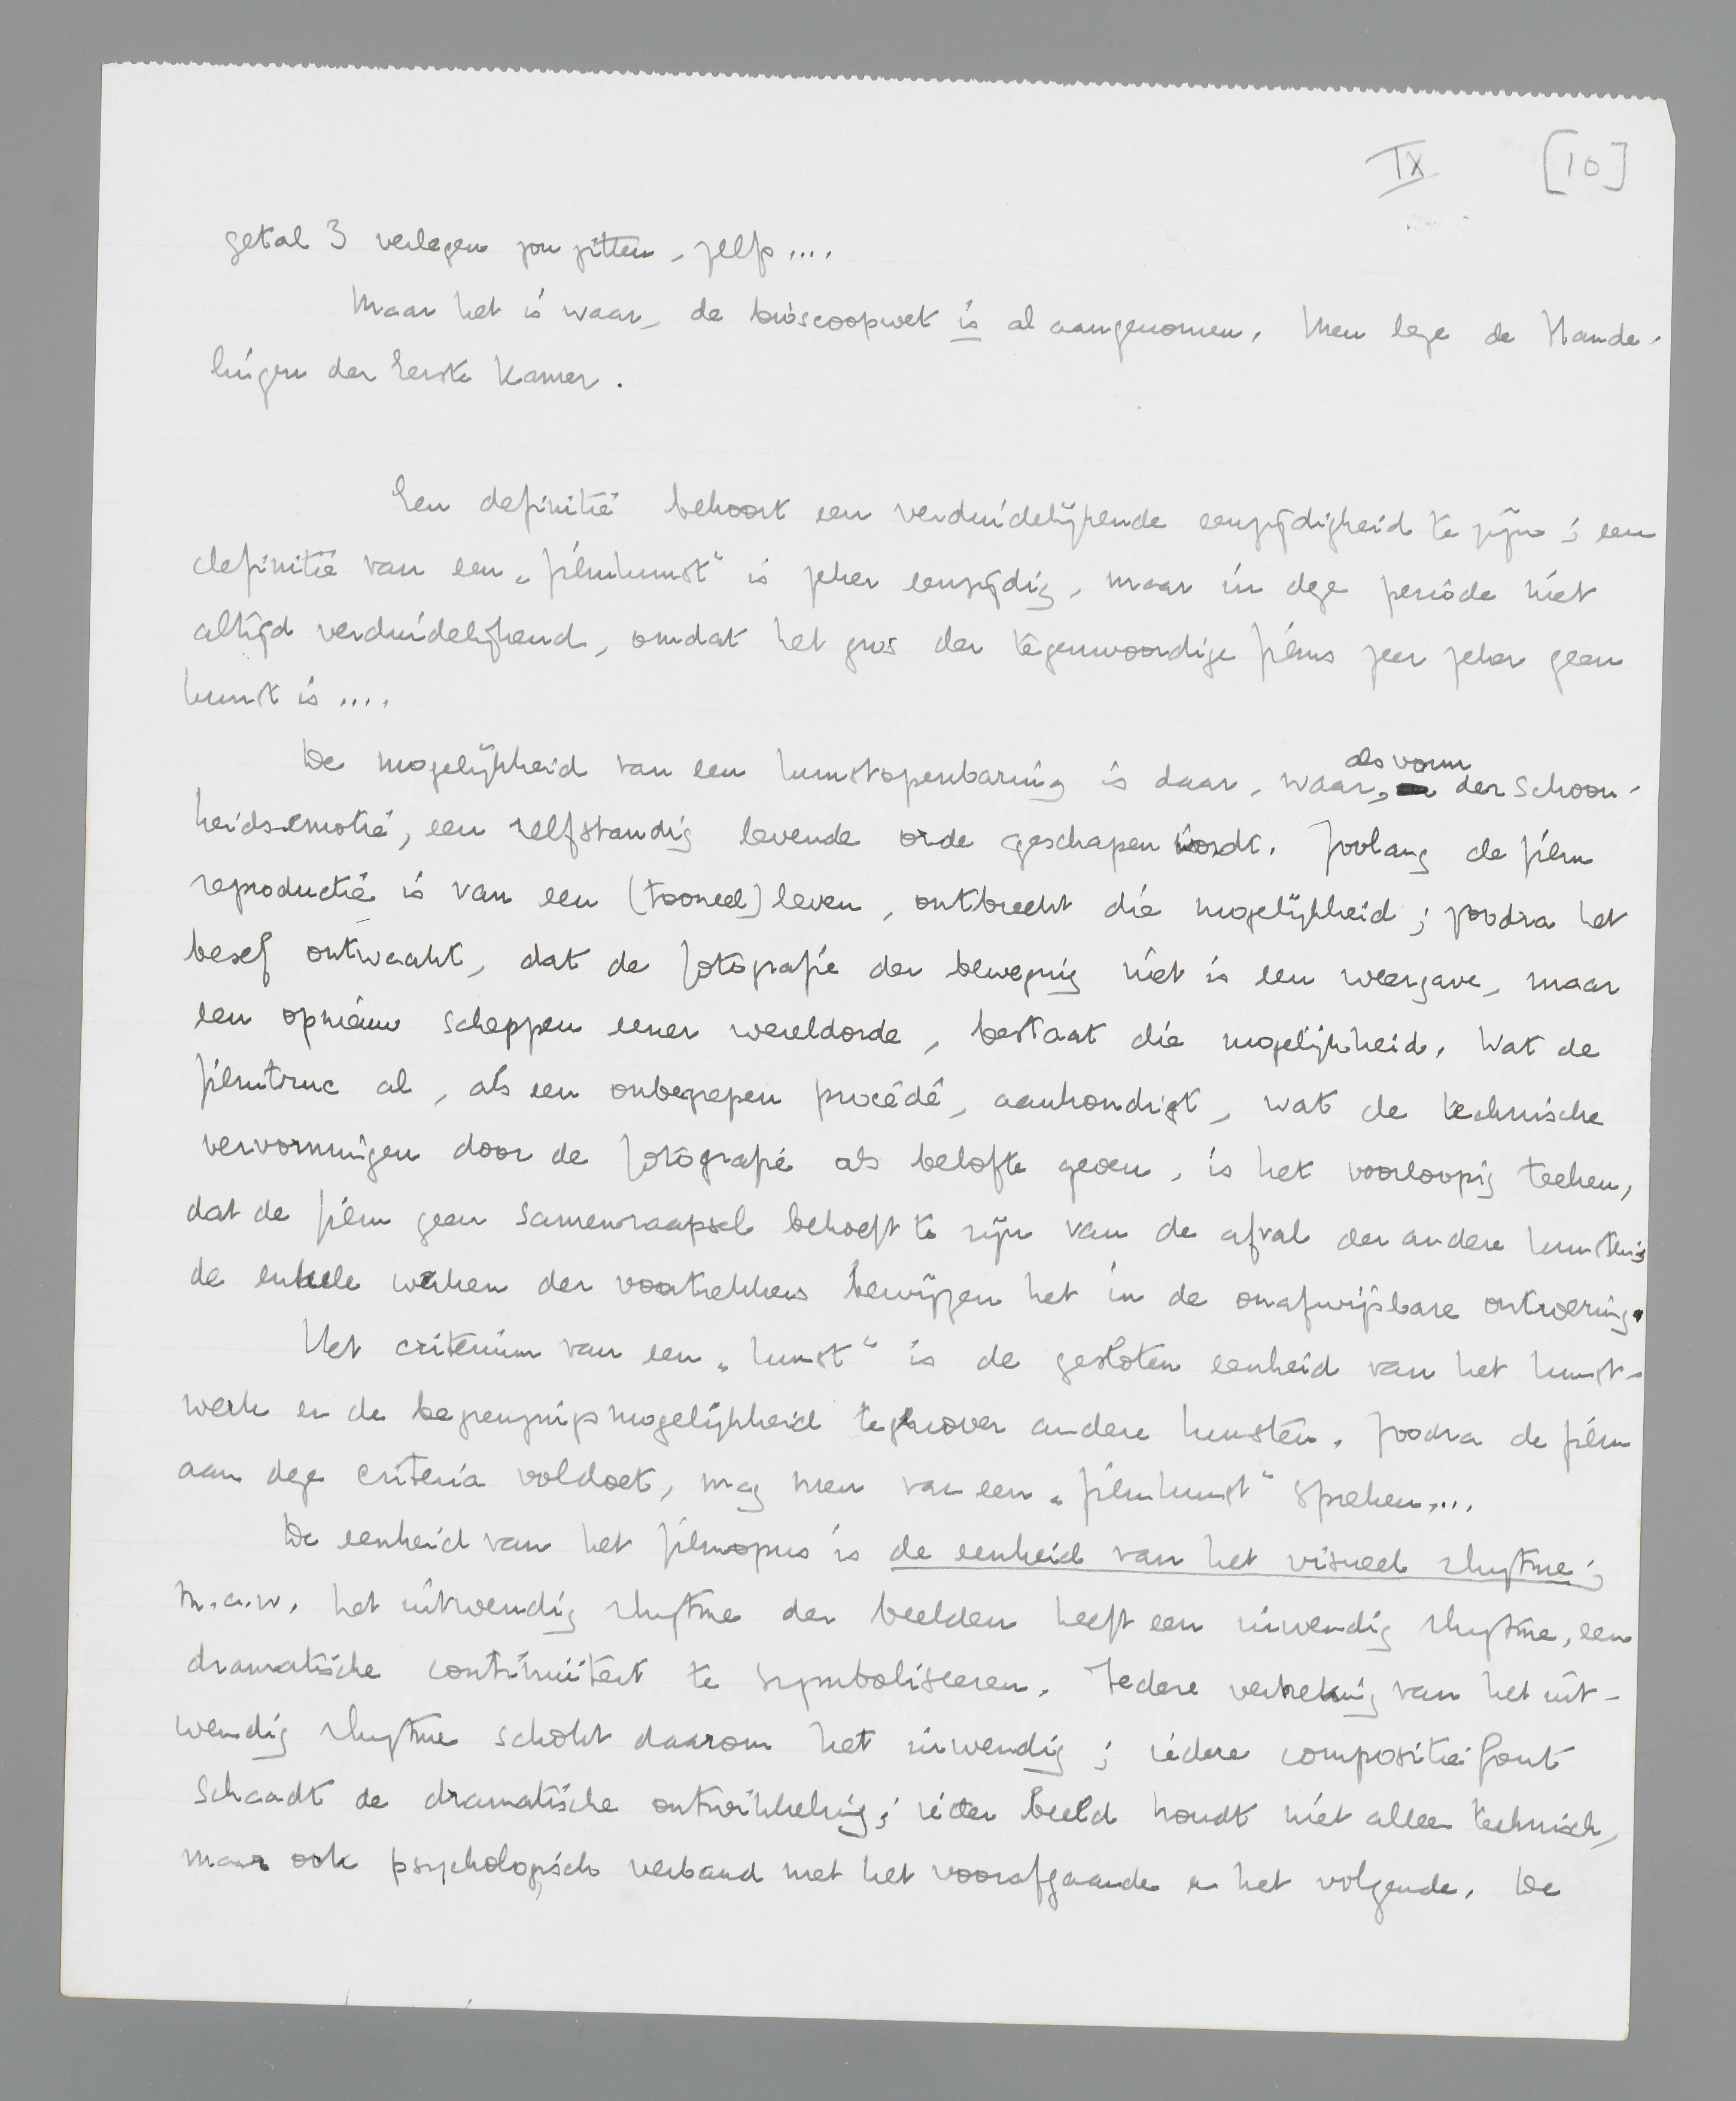 IX [10]
getal 3 verlegen zou zitten, zelfs....
Maar het is waar, de bioscoopwet is al aangenomen. Men leze de Hande-
lingen der Eerste Kamer.
Een definitie behoort een verduidelijkende eenzijdigheid te zijn; een
definitie van een „filmkunst" is zeker eenzijdig, maar in deze periode niet
altijd verduidelijkend, omdat het gros der tegenwoordige films zeer zeker geen
kunst is....
De mogelijkheid van een kunstopenbaring is daar, waar, als vorm der schoon-
heidsemotie, een zelfstandig levende orde geschapen wordt. Zoolang de film
reproductie is van een (tooneel) leven, ontbreekt die mogelijkheid; zoodra het
besef ontwaakt, dat de fotografie der beweging niet is een weergave, maar
een opnieuw scheppen eener wereldorde, bestaat die mogelijkheid. Wat de
filmtruc al, als een onbegrepen procédé, aankondigt, wat de technische
vervormingen door de fotografie als belofte geven, is het voorloopig teeken,
dat de film geen samenraapsel behoeft te zijn van de afval der andere kunsten;
de enkele werken der voortrekkers bewijzen het in de onafwijsbare ontroering.
Het criterium van een „kunst" is de gesloten eenheid van het kunst-
werk en de begrenzingsmogelijkheid tegenover andere kunsten. Zoodra de film
aan deze criteria voldoet, mag men van een „filmkunst" spreken....
De eenheid van het filmopus is de eenheid van het visueel rhytme;
m.a.w. het uitwendig rhytme der beelden heeft een inwendig rhytme, een
dramatische continuïteit te symboliseeren. Iedere verbreking van het uit-
wendig rhytme schokt daarom het inwendig; iedere compositiefout
schaadt de dramatische ontwikkeling; ieder beeld houdt niet alleen technisch,
maar ook psychologisch verband met het voorafgaande en het volgende. De